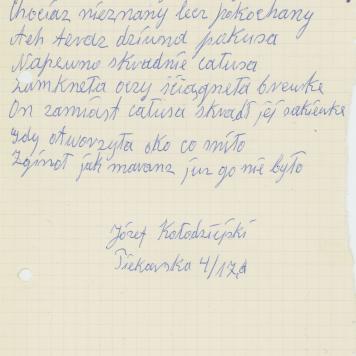 Chociaż nieznany lecz pokochany
Ach teraz dziwna pakusa
Napewno skradnie całusa
Zamkneła oczy ściągneła brewke
On zamiast całusa skradł jej sakiewke
gdy otworzyła oko co miło
Zginoł jak mararz juz go nie było
Józef Kołodziejski
Piekarska 4/17